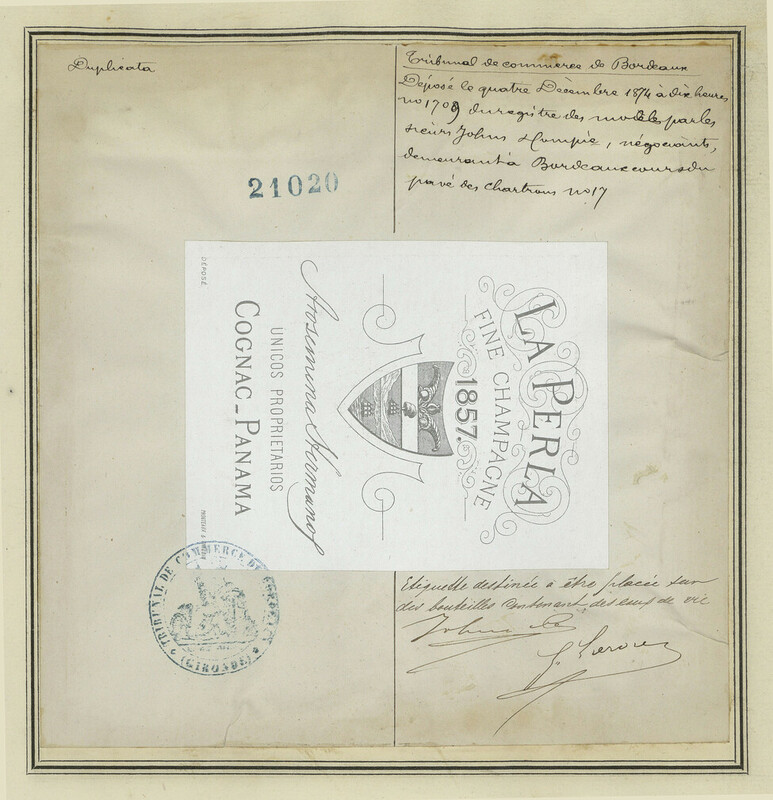 Duplicata
Tribunal de commerce de Bordeaux
Déposé le quatre Décembre 1874 à dix heures
no 1709 du registre des modèles par les
sieurs Johns & Compie, négociants,
demeurant à Bordeaux cours du
pavé des Chartrons no 17
21020
LA PERLA
FINE CHAMPAGNE
1857.
Arosemena Hermanos
UNICOS PROPRIETARIOS
COGNAC_PANAMA
DÉPOSÉ
Etiquette destinée à être placée sur
des bouteilles contenant des eaux de vie
Johns
TRIBUNAL DE COMMERCE DE BORDEAUX
(GIRONDE)